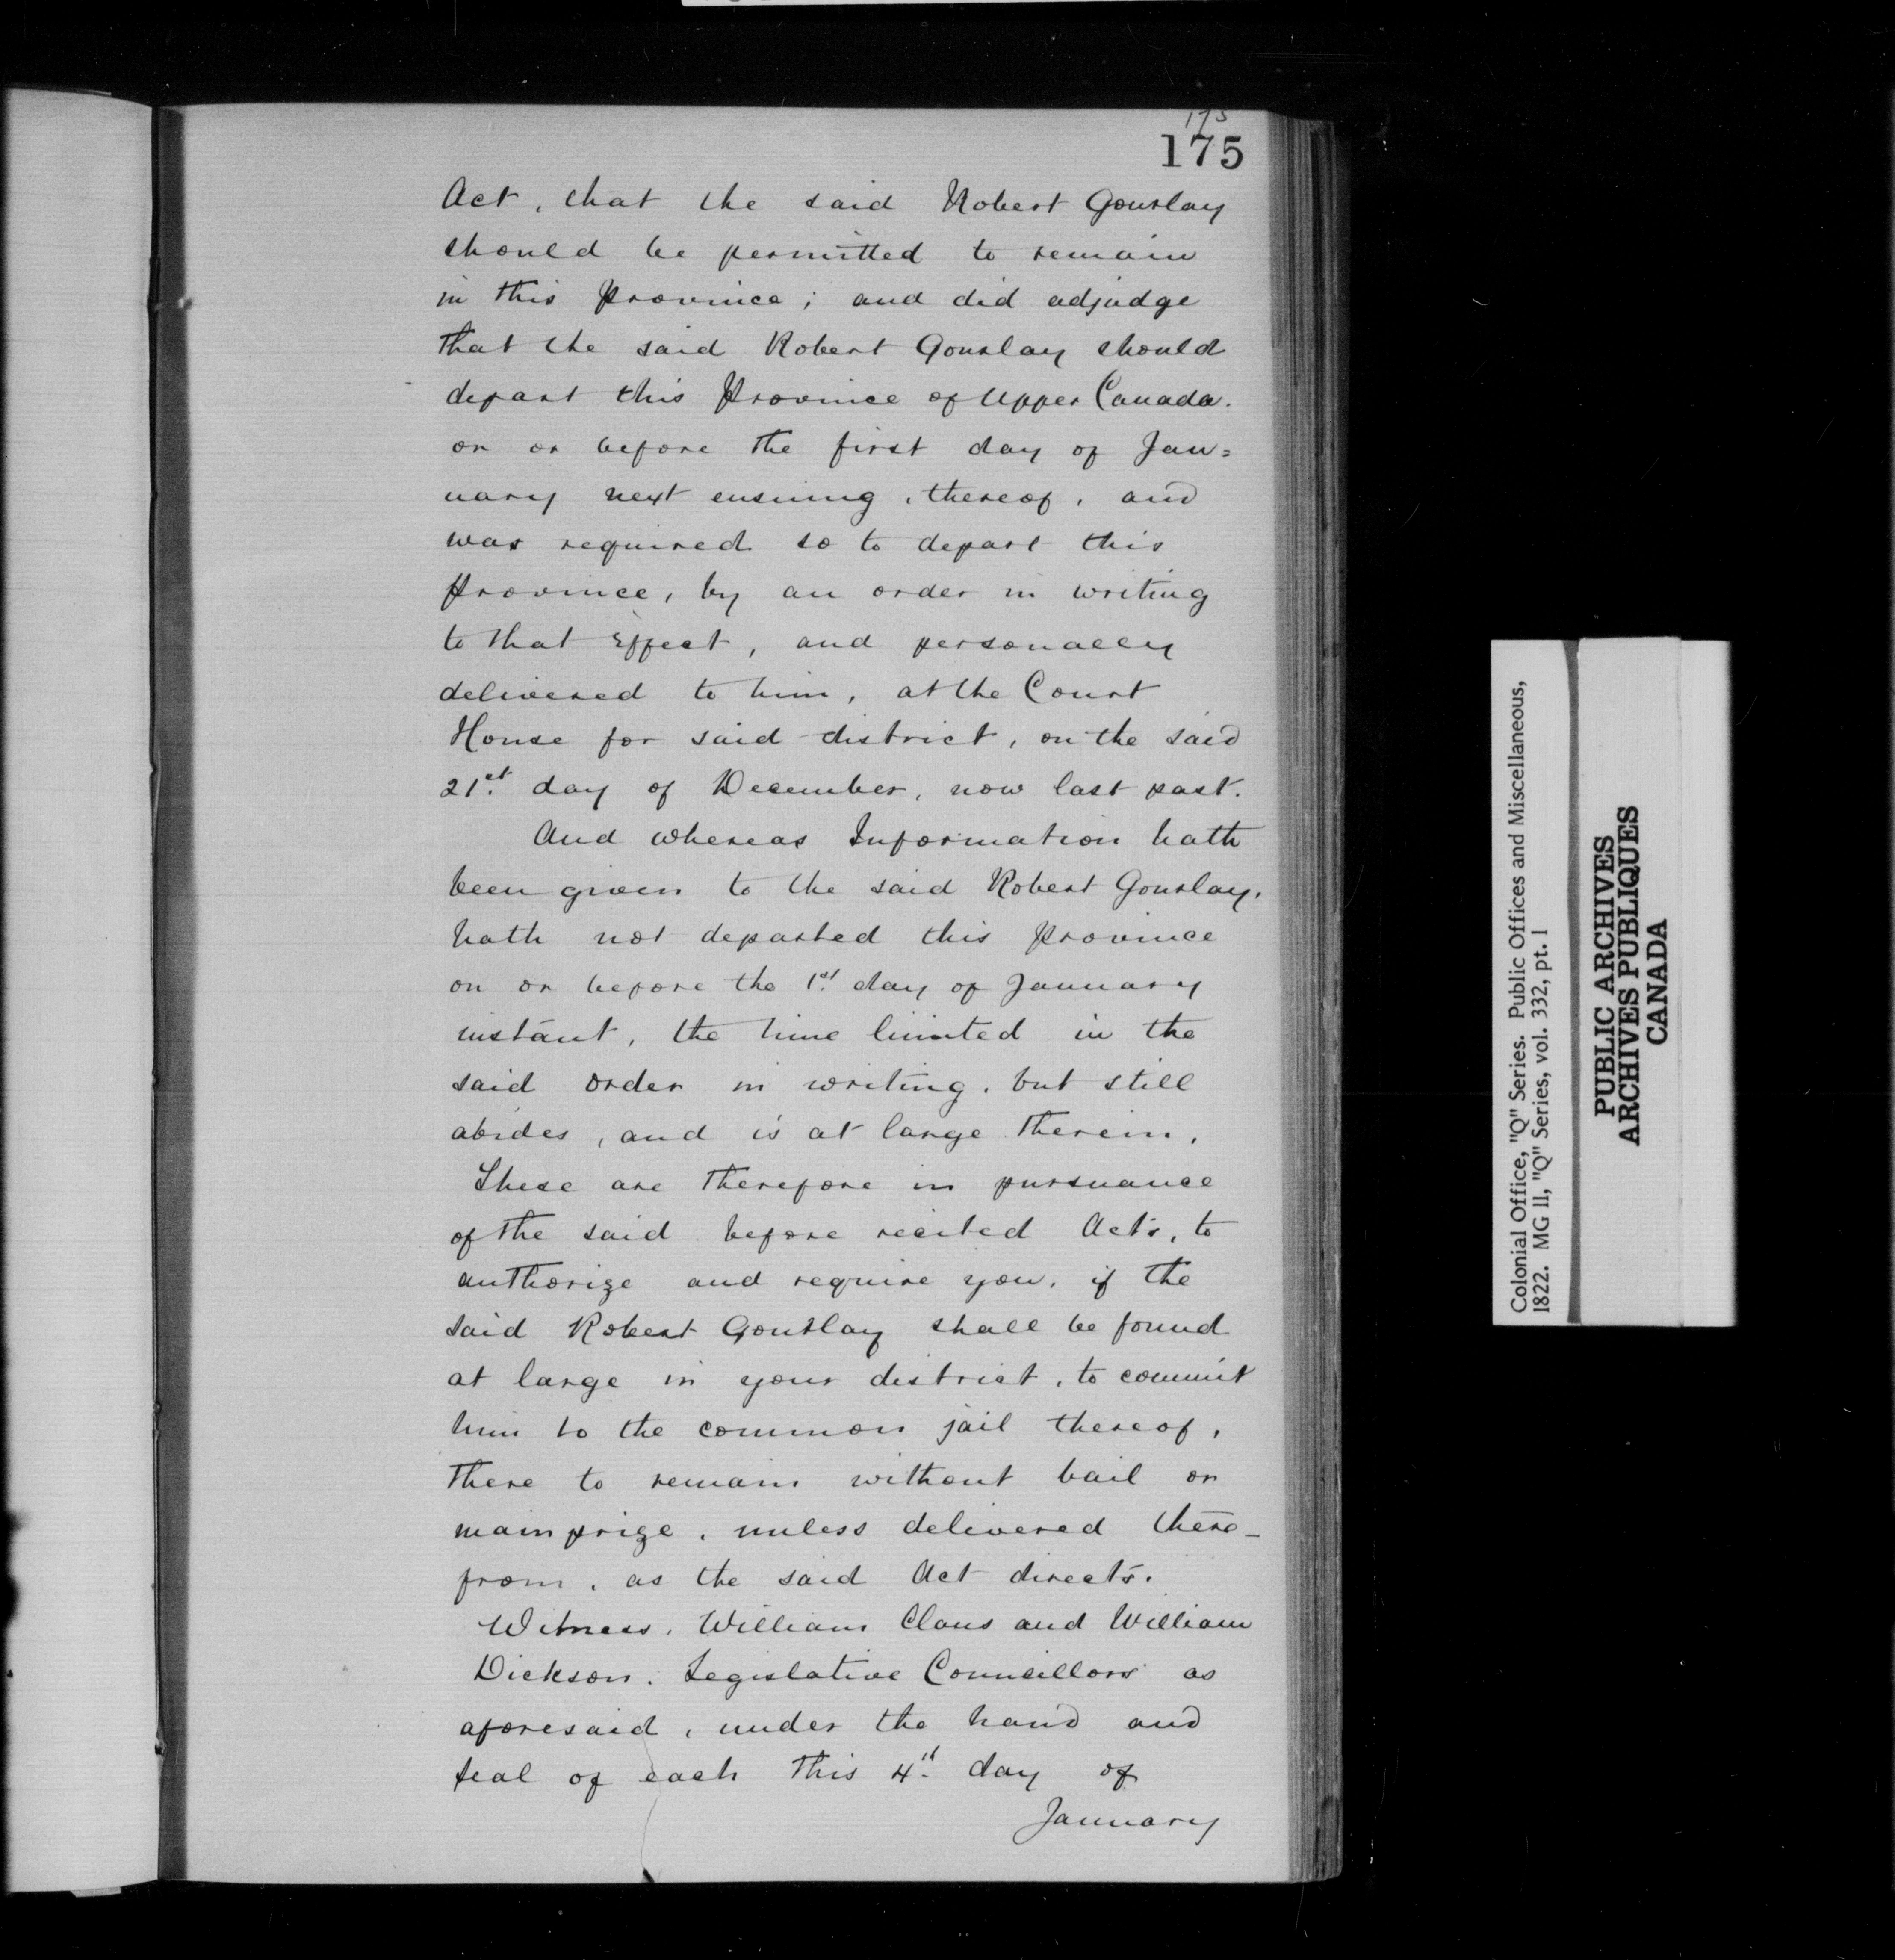 175
175
Act, that the said Robert Gourlay
should be permitted to remain
in this Province; and did adjudge
that the said Robert Gourlay should
depart this Province of Upper Canada.
on or before the first day of Jan=
uary next ensuing, thereof, and
was required so to depart this
Province, by an order in writing
to that Effect, and personally
delivered to him, at the Court
House for said district, on the said
21st. day of December, now last past.
And whereas Information hath
been given to the said Robert Gourlay,
hath not departed this Province
on or before the 1st. day of January
instant, the time limited in the
said order in writing, but still
abides, and is at large therein.
These are therefore in pursuance
of the said before recited Acts, to
authorize and require you, if the
said Robert Gourlay shall be found
at large in your district, to commit
him to the common jail thereof,
there to remain without bail or
mainprize, unless delivered there-
from, as the said Act directs.
Witness, William Claus and William
Dickson. Legislative Councillors as
aforesaid, under the hand and
seal of each this 4th. day of
January
Colonial Office, "Q" Series. Public Offices and Miscellaneous,
1822. MG 11, "Q" Series, vol. 332, pt. 1
PUBLIC ARCHIVES
ARCHIVES PUBLIQUES
CANADA